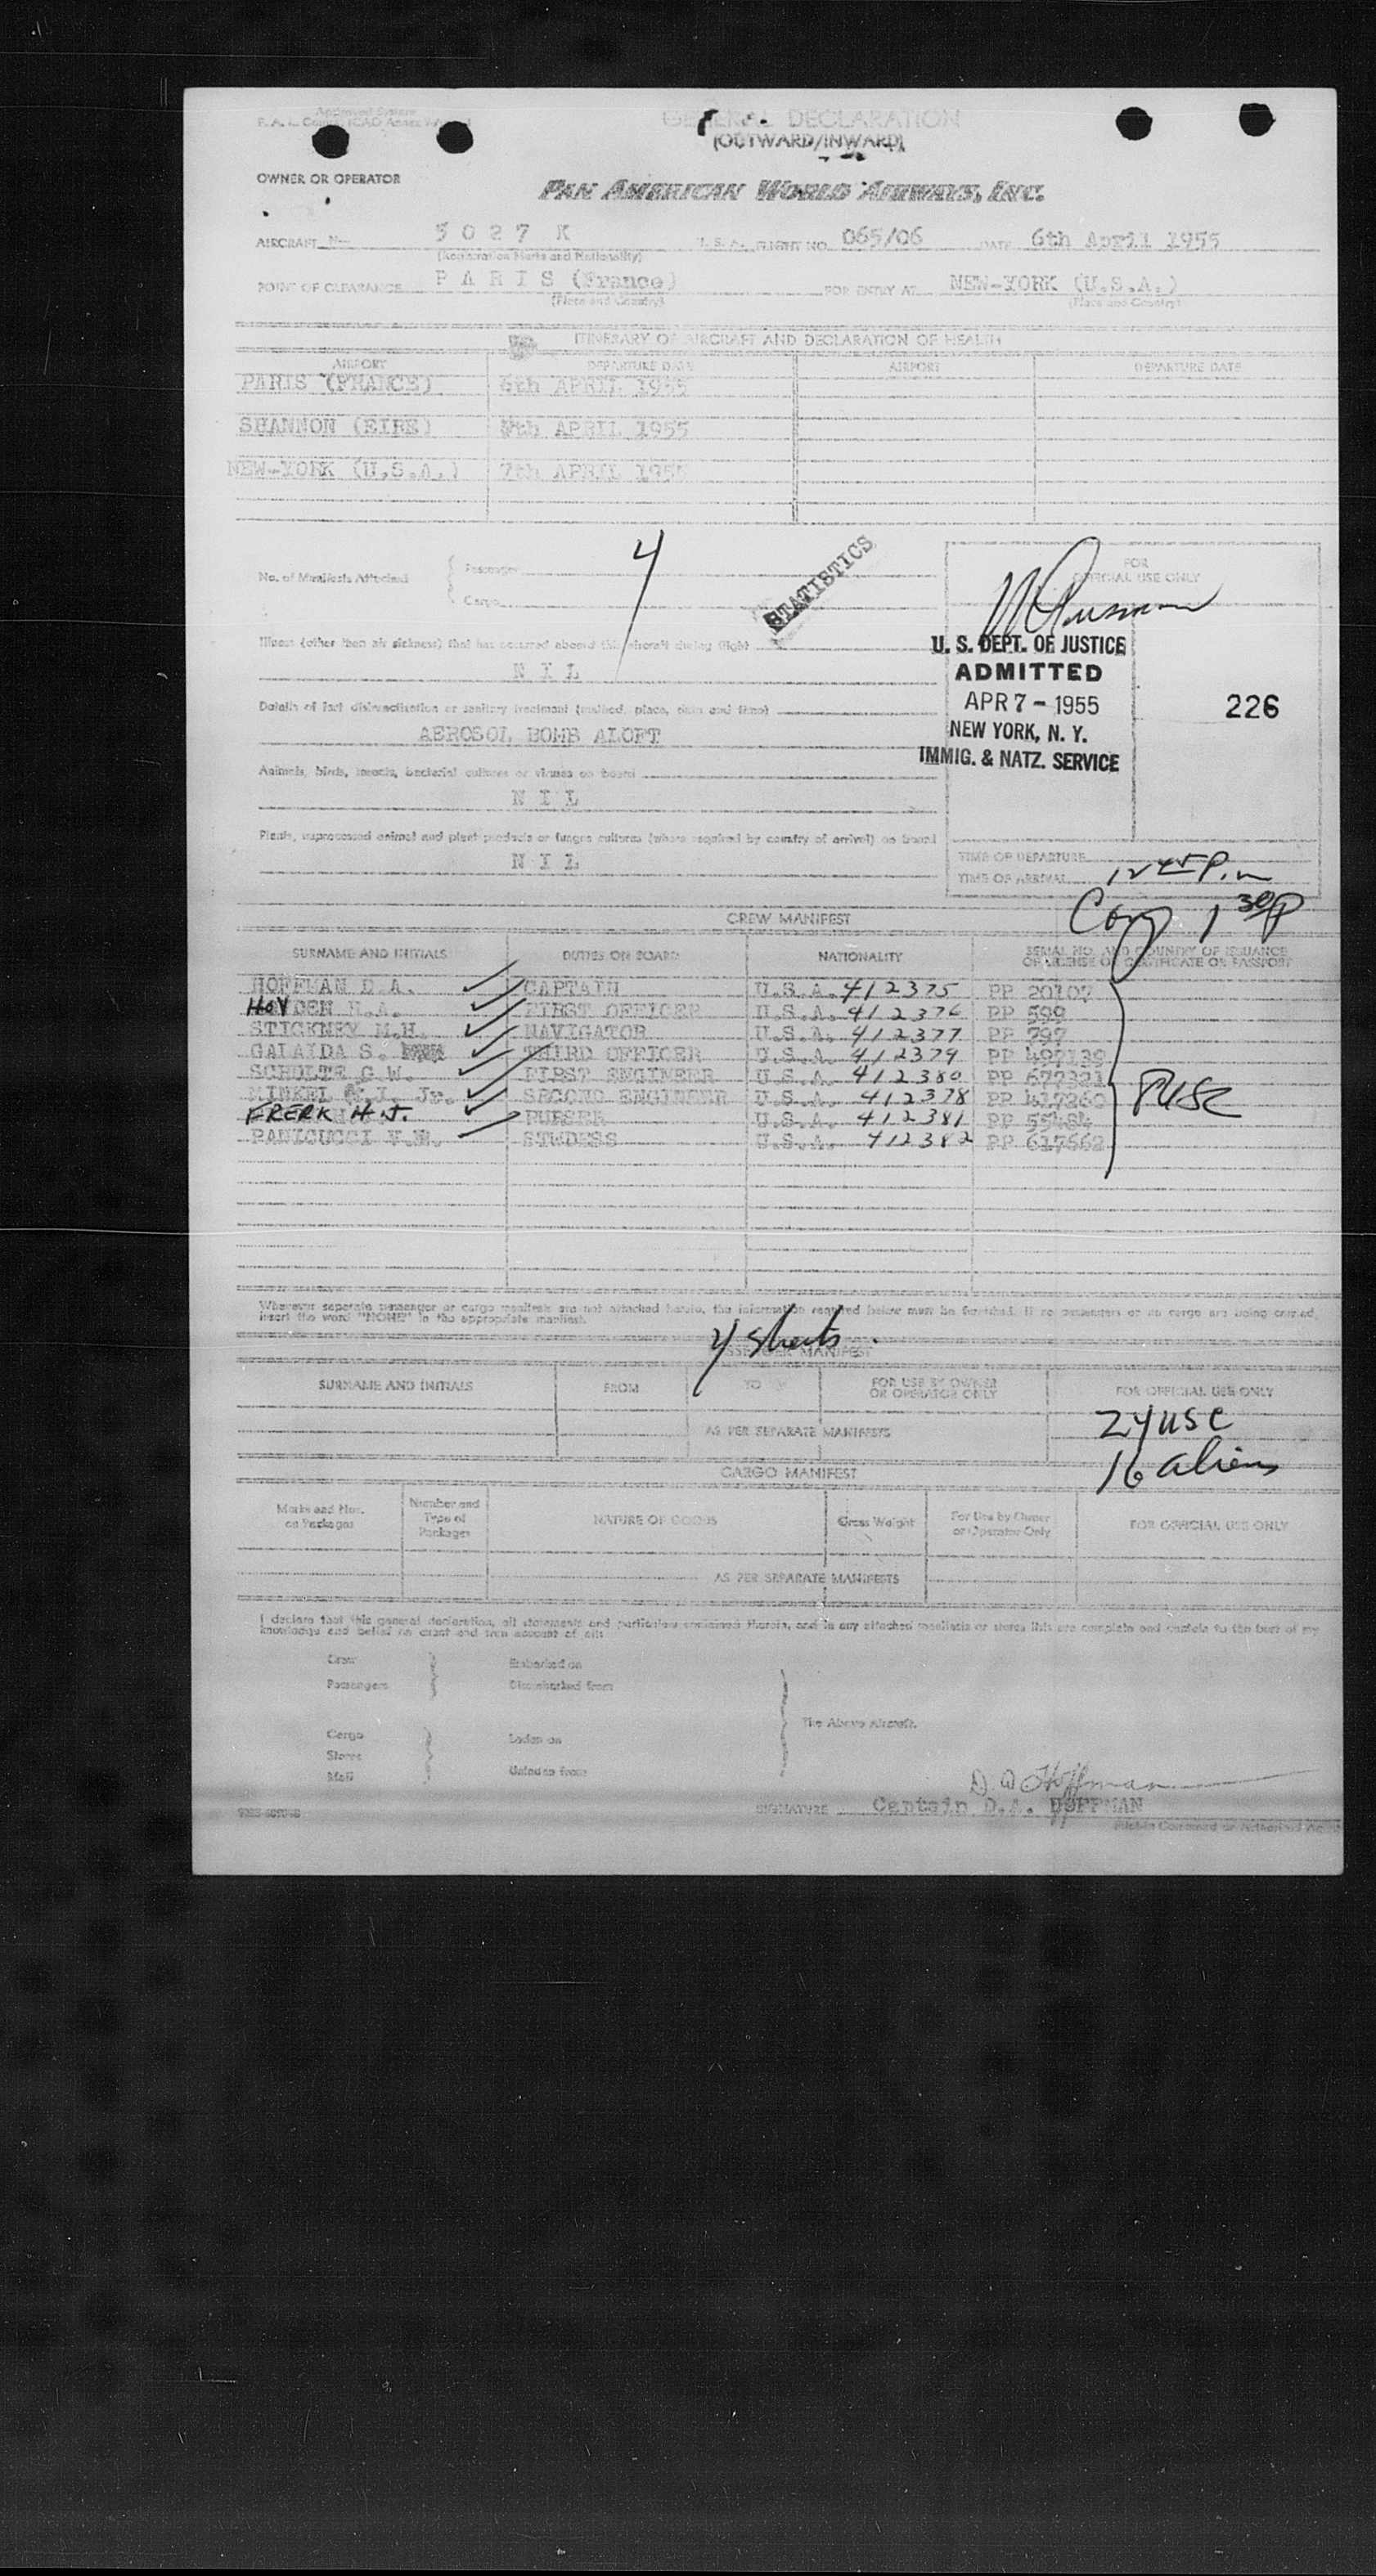 GENERAL DECLARATION
(OUTWARD/INWARD)
OWNER OR OPERATOR
PAN AMERICAN WORLD AIRWAYS, INC.
AIRCRAFT N- 5027 K U.S.A. FLIGHT NO. 065/06 DATE 6th April 1955
(Registration Marks and Nationality)
POINT OF CLEARANCE PARIS (France) FOR ENTRY AT NEW-YORK (U.S.A.)
(Place and Country) (Place and Country)
ITINERARY OF AIRCRAFT AND DECLARATION OF HEALTH
AIRPORT DEPARTURE DATE AIRPORT DEPARTURE DATE
PARIS (FRANCE) 6th APRIL 1955
SHANNON (EIRE) APRIL 1955
NEW-YORK (U.S.A.) 7th APRIL 1955
4
STATISTICS
FOR
OFFICIAL USE ONLY
No. of Manifests Attached
Passenger
Cargo
Illness (other than air sickness) that has occurred aboard the aircraft during flight
NIL
U. S. DEPT. OF JUSTICE
ADMITTED
APR 7 - 1955
NEW YORK, N. Y.
IMMIG. & NATZ. SERVICE
226
Details of last disinsectisation or sanitary treatment (method, place, date and time)
AEROSOL BOMB ALOFT
Animals, birds, insects, bacterial cultures or viruses on board
NIL
Plants, unprocessed animal and plant products or fungus cultures (where required by country of arrival) on board
NIL
TIME OF DEPARTURE
TIME OF ARRIVAL 12 45 P.m
1 30 P
CREW MANIFEST
SURNAME AND INITIALS DUTIES ON BOARD NATIONALITY SERIAL NO. AND COUNTRY OF ISSUANCE
OF LICENSE OR CERTIFICATE OR PASSPORT
HOFFMAN D.A. CAPTAIN U.S.A. 412375 PP 20107
HOVDEN R.A. FIRST OFFICER U.S.A. 412376 PP 599
STICKNEY M.H. NAVIGATOR U.S.A. 412377 PP 797
GALAIDA S. THIRD OFFICER U.S.A. 412379 PP 497139
SCHULTE G.W. FIRST ENGINEER U.S.A. 412380 PP 677321
Jr. SECOND ENGINEER U.S.A. 412378 PP 417260
FRERK H.J. PURSER U.S.A. 412381 PP 55484
PANICUCCI STWDESS U.S.A. 412382 PP 617562
8 USC
Wherever separate passenger or cargo manifests are not attached hereto, the information required below must be furnished. If no passengers or no cargo are being carried,
insert the word "NONE" in the appropriate manifest.
4 sheets.
PASSENGER MANIFEST
SURNAME AND INITIALS FROM TO FOR USE BY OWNER
OR OPERATOR ONLY FOR OFFICIAL USE ONLY
AS PER SEPARATE MANIFESTS
24 USC
16 aliens
CARGO MANIFEST
Marks and Nos.
on Packages Number and
Type of
Packages NATURE OF GOODS Gross Weight For Use by Owner
or Operator Only FOR OFFICIAL USE ONLY
AS PER SEPARATE MANIFESTS
I declare that this general declaration, all statements and particulars contained therein, and in any attached manifests or stores lists are complete and
knowledge and belief an exact and true account of all:
Crew Embarked on
Passengers Disembarked from
The Above Aircraft.
Cargo Laden on
Stores
Mail Unladen from
SIGNATURE Captain D.A. HOFFMAN